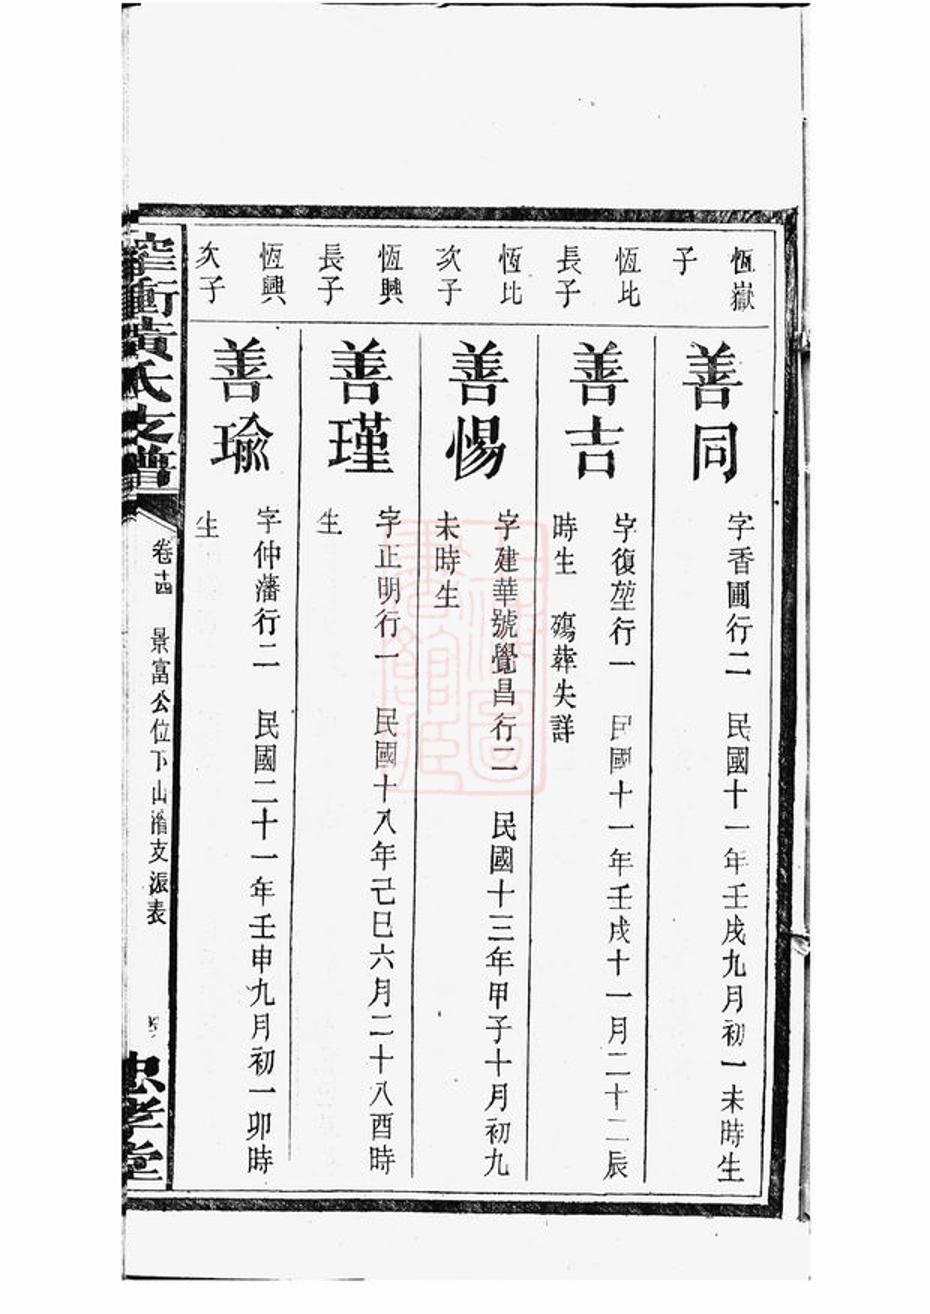 恆嶽
子
善同
字香圃行二　民國十一年壬戌九月初一未時生
恆比
長子
善吉
字復堃行一　民國十一年壬戌十一月二十二辰
時生　殤葬失詳
恆比
次子
善惕
字建華號覺昌行二　民國十三年甲子十月初九
未時生
恆興
長子
善瑾
字正明行一　民國十八年己巳六月二十八酉時
生
恆興
次子
善瑜
字仲藩行二　民國二十一年壬申九月初一卯時
生
衝黃氏支譜
卷十四　景富公位下山湝支派表
忠孝堂
上海圖書館藏